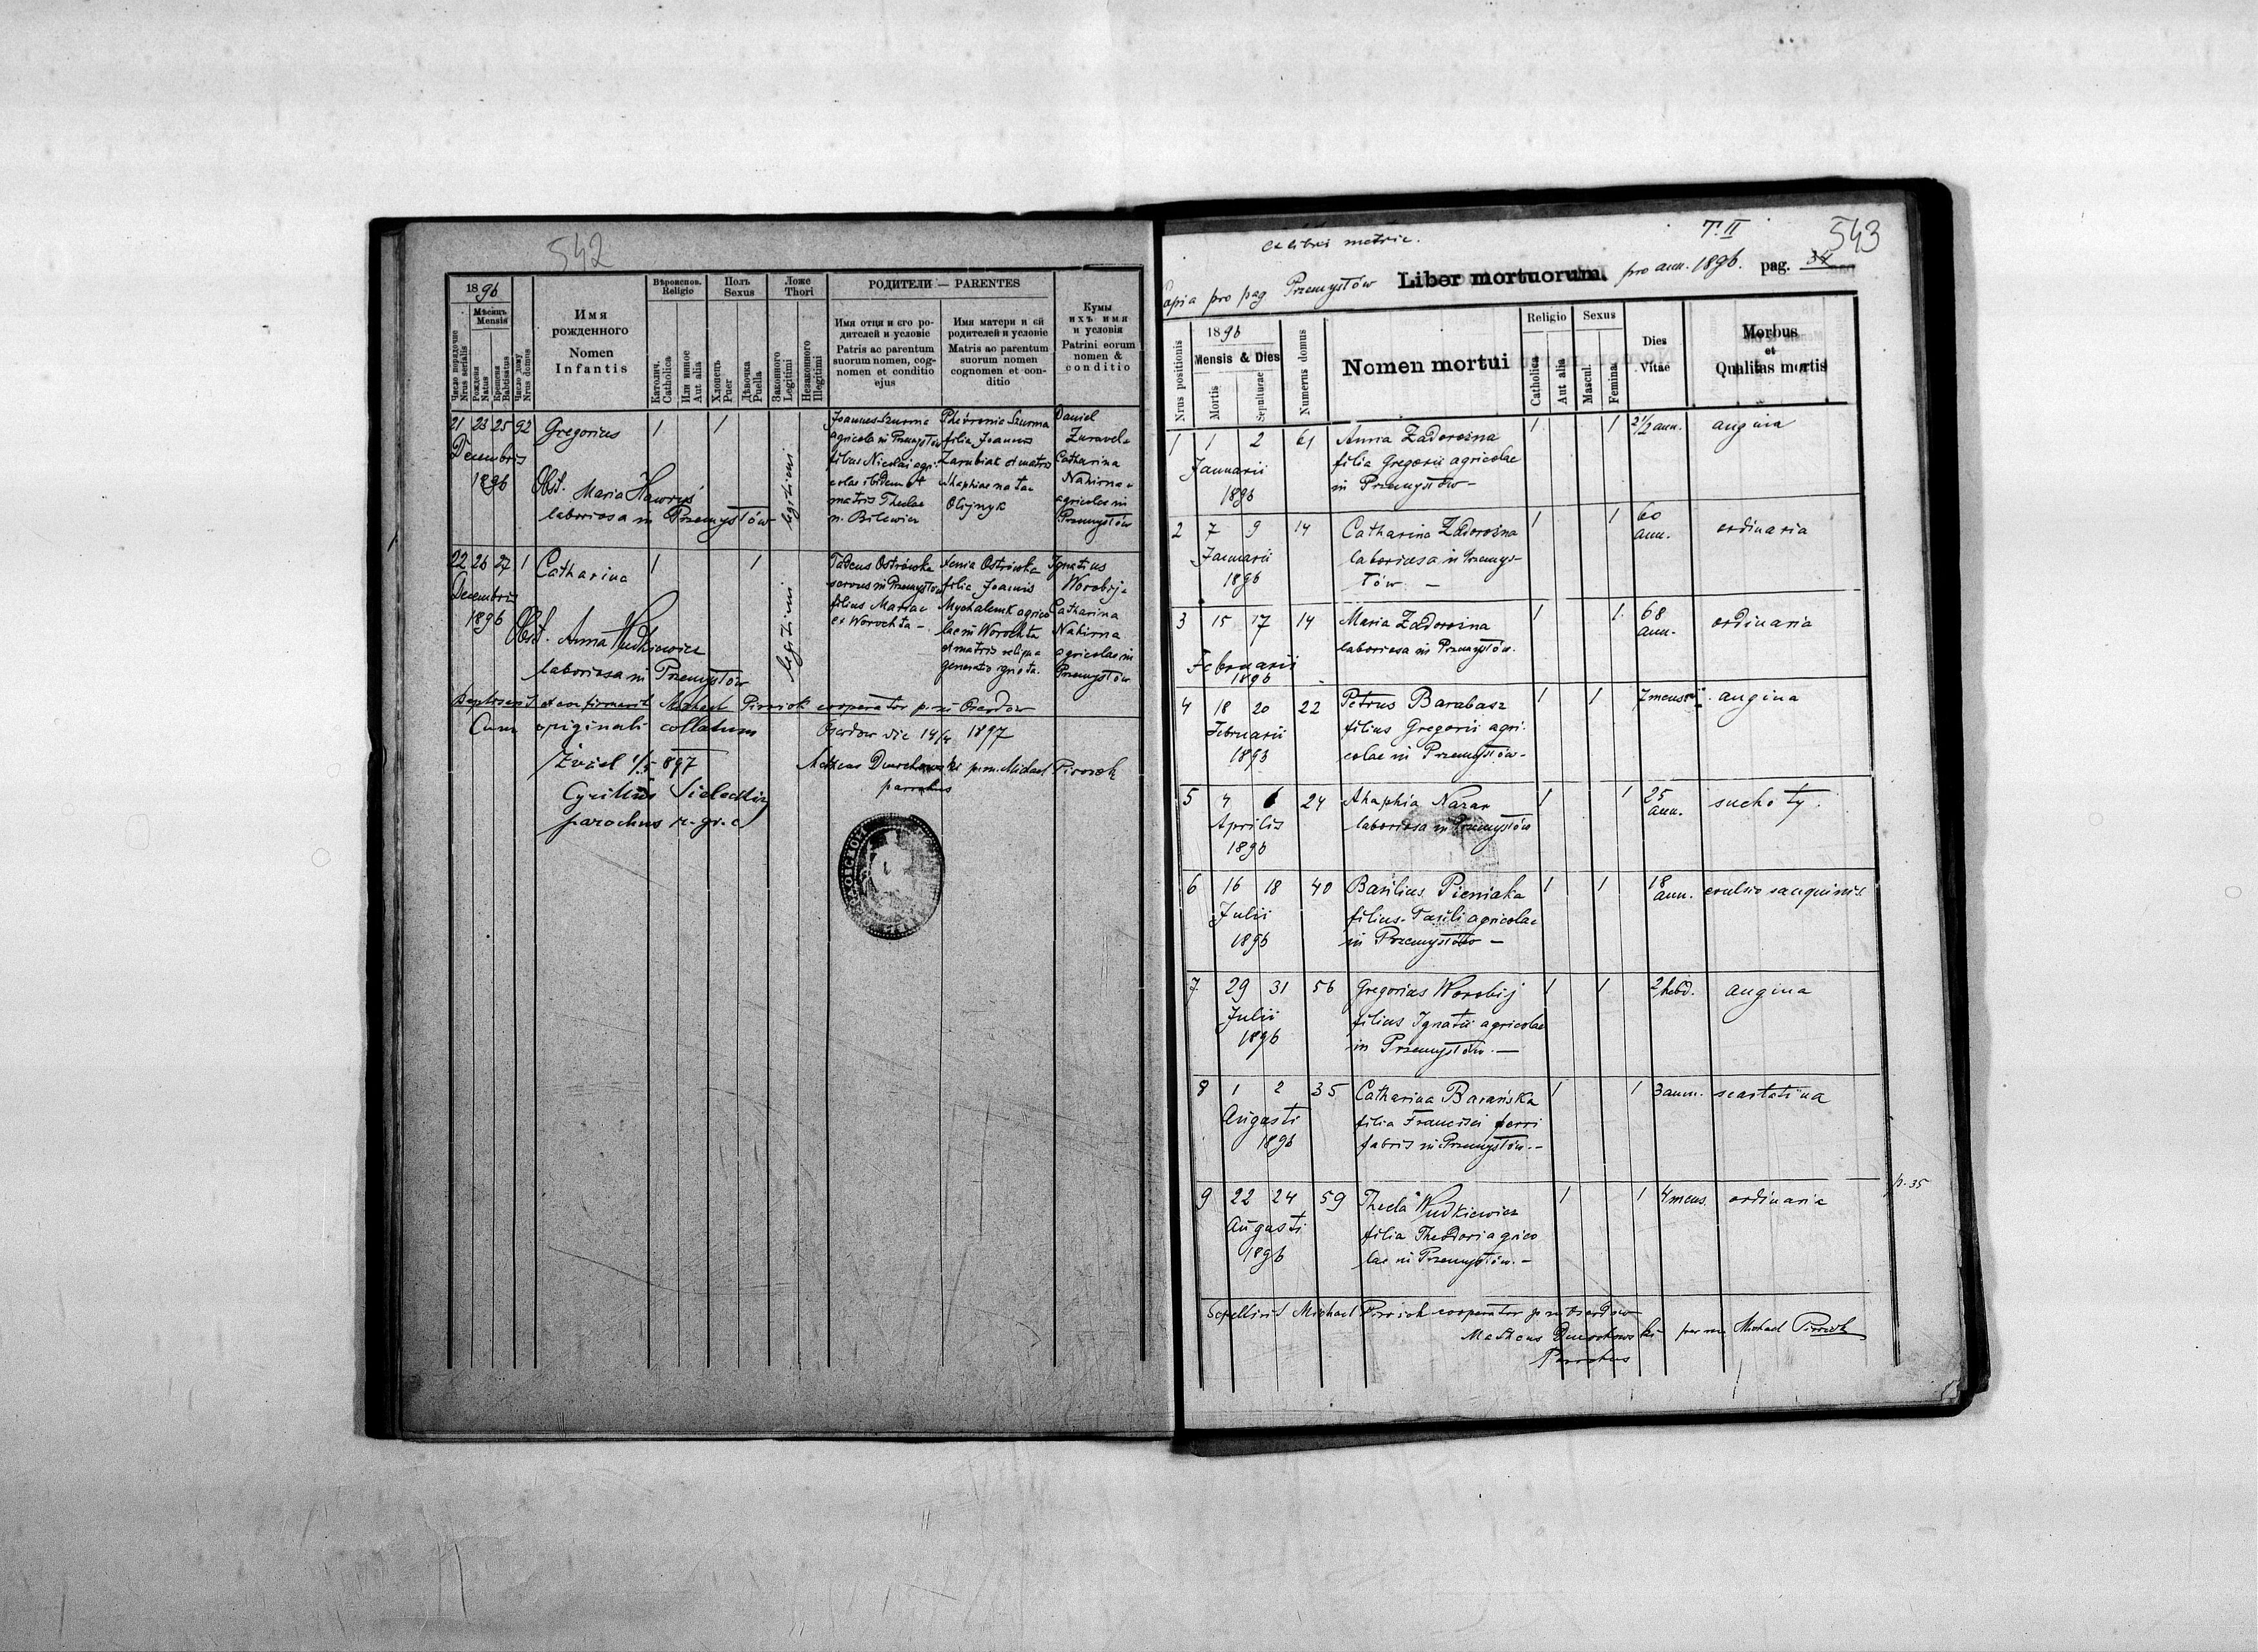 542
1896
Число порядочне
Nrus serialis
Мѣсяцъ
Mensis
Рождена
Natus
Крещена
Babtisatus
Число дому
Nrus domus
Имя
рожденного
Nomen
Infantis
Вѣроиспов.
Religio
Католич.
Catholica
Или инное
Aut alia
Полъ
Sexus
Хлопецъ
Puer
Дѣвочка
Puella
Ложе
Thori
Законного
Legitimi
Незаконного
Illegitimi
РОДИТЕЛИ — PARENTES
Имя отця и єго ро-
дителей и условіє
Patris ac parentum
suorum nomen, cog-
nomen et conditio
ejus
Имя матери и єй
родителей и условіє
Matris ac parentum
suorum nomen
cognomen et con-
ditio
Кумы
ихъ имя
и условія
Patrini eorum
nomen &
conditio
21 23 25 92
Decembris
1896
Gregorius
Obst. Maria Hawryś
laboriosa in Przemysłów
1
1
legitimi
Joannes Szurma
agricola in Przemysłów
filius Nicolai agri-
colae ibidem et
matris Theclae
n. Bilewicz
Phevronia Szurma
filia Joannis
Zarubiak et matris
Ahaphiae nata
Olijnyk
Daniel
Zuravel
Catharina
Nahirna
agricolae in
Przemysłów
22 26 27 1
Decembris
1896
Catharina
Obst. Anna Wudkiewicz
laboriosa in Przemysłów
1
1
legitimi
Tadeus Ostrówka
servus in Przemysłów
filius Mariae
ex Worochta –
Xenia Ostrówka
filia Joannis
Mychalcuk agrico
lae in Worochta
et matris
generatio ignota.
Ignatius
Worobij
Catharina
Nahirna
agricolae in
Przemysłów
Baptisavit et confirmavit Michael Pirożok cooperator p. in Oserdow
Cum originali collatum
Oserdow die 14/4 1897
Żniel 1/5 897
Cyrillus Sielecki
parochus r. gr. c
parochus
543
T. II
ex libris metric.
Copia pro pag Przemysłów Liber mortuorum. pro ann. 1896. pag. 34
Nrus positionis
1896
Mensis & Dies
Mortis
Sepulturae
Numerus domus
Nomen mortui
Religio
Catholica
Aut alia
Sexus
Mascul.
Femina
Dies
Vitae
Morbus
et
Qualitas mortis
1 1 2 61 Anna Zadorożna 1 1 2 1/2 ann. angina
Januarii filia Gregorii agricolae
1896 in Przemysłów –
2 7 9 14 Catharina Zadorożna 1 1 60 ann. ordinaria
Januarii laboriosa in Przemys-
1896 łów. –
3 15 17 14 Maria Zadorożna 1 1 68 ann. ordinaria
Februarii laboriosa in Przemysłów.
1896
4 18 20 22 Petrus Barabasz 1 1 7 mens. angina
Februarii filius Gregorii agri-
1896 colae in Przemysłów –
5 4 6 24 Ahaphia Nazar 1 1 25 ann. suchoty.
Aprilis laboriosa in Przemysłów
1896
6 16 18 40 Basilius Pieniaka 1 1 18 ann. sanguinis.
Julii filius agricolae
1896 in Przemysłów –
7 29 31 56 Gregorius Worobij 1 1 2 hebd. angina
Julii filius Ignatii agricolae
1896 in Przemysłów. –
8 1 2 35 Catharina Barańska 1 1 3 ann. scarlatina
Augusti filia Francisci ferri
1896 fabris in Przemysłów. –
9 22 24 59 Thecla Wudkiewicz 1 1 4 mens. ordinaria
Augusti filia Theodori agrico
1896 lae in Przemysłów. –
p. 35
Sepelivit Michael Pirożok cooperator p. in Oserdow
Parochus